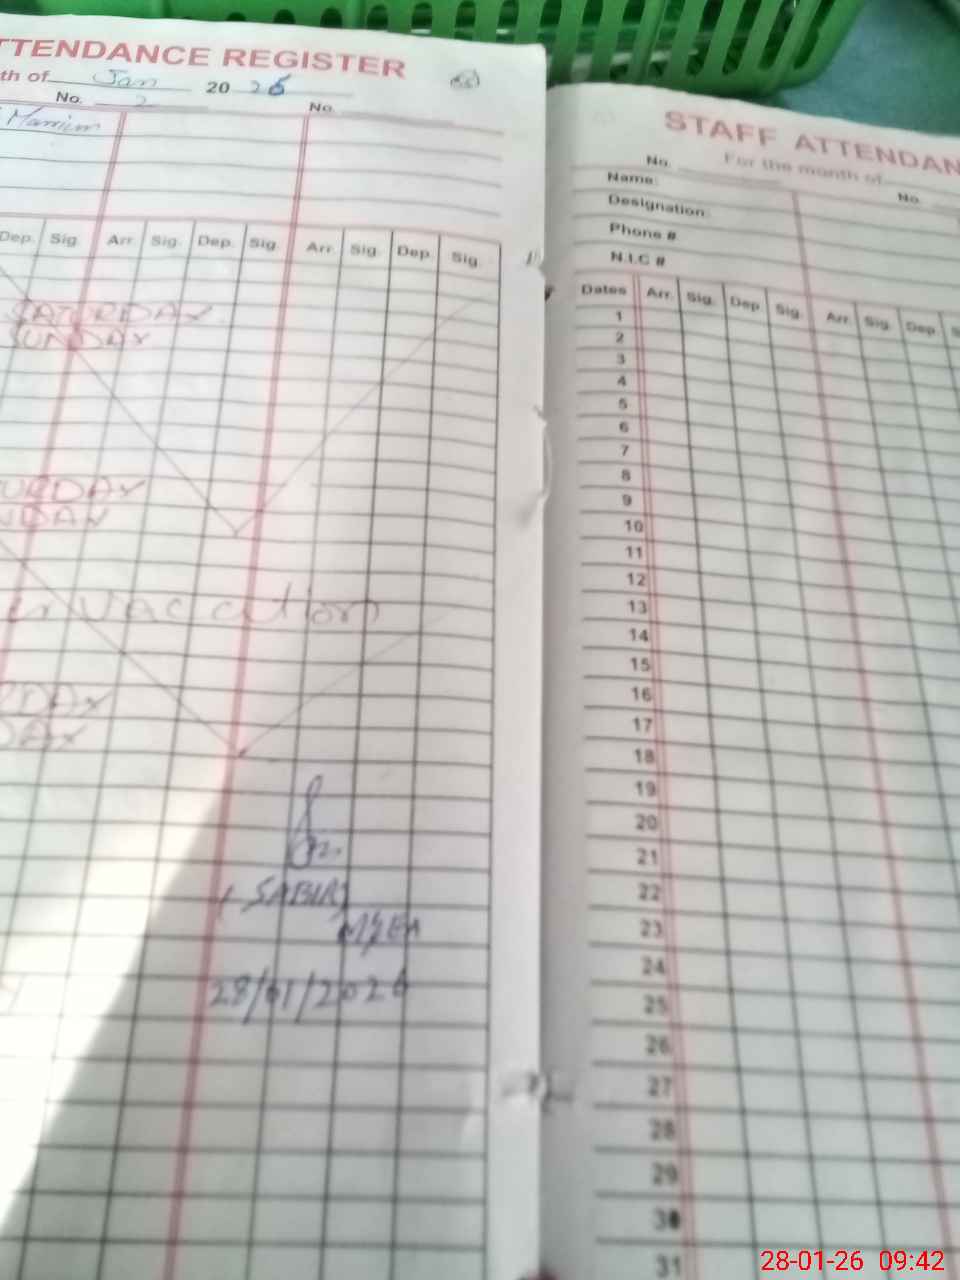 TTENDANCE REGISTER
th of Jan 20 26
No. 2 No.
Dep. Sig. Arr. Sig. Dep. Sig. Arr. Sig. Dep. Sig.
SATURDAY
SUNDAY
URDAY
NDAY
vacation
DAY
DAY
(SABIR)
28/01/2026
STAFF ATTENDAN
For the month of
No. No.
Name:
Designation:
Phone #
N.I.C #
Dates Arr. Sig. Dep. Sig. Arr. Sig. Dep.
1
2
3
4
5
6
7
8
9
10
11
12
13
14
15
16
17
18
19
20
21
22
23
24
25
26
27
28
29
30
31
28-01-26 09:42